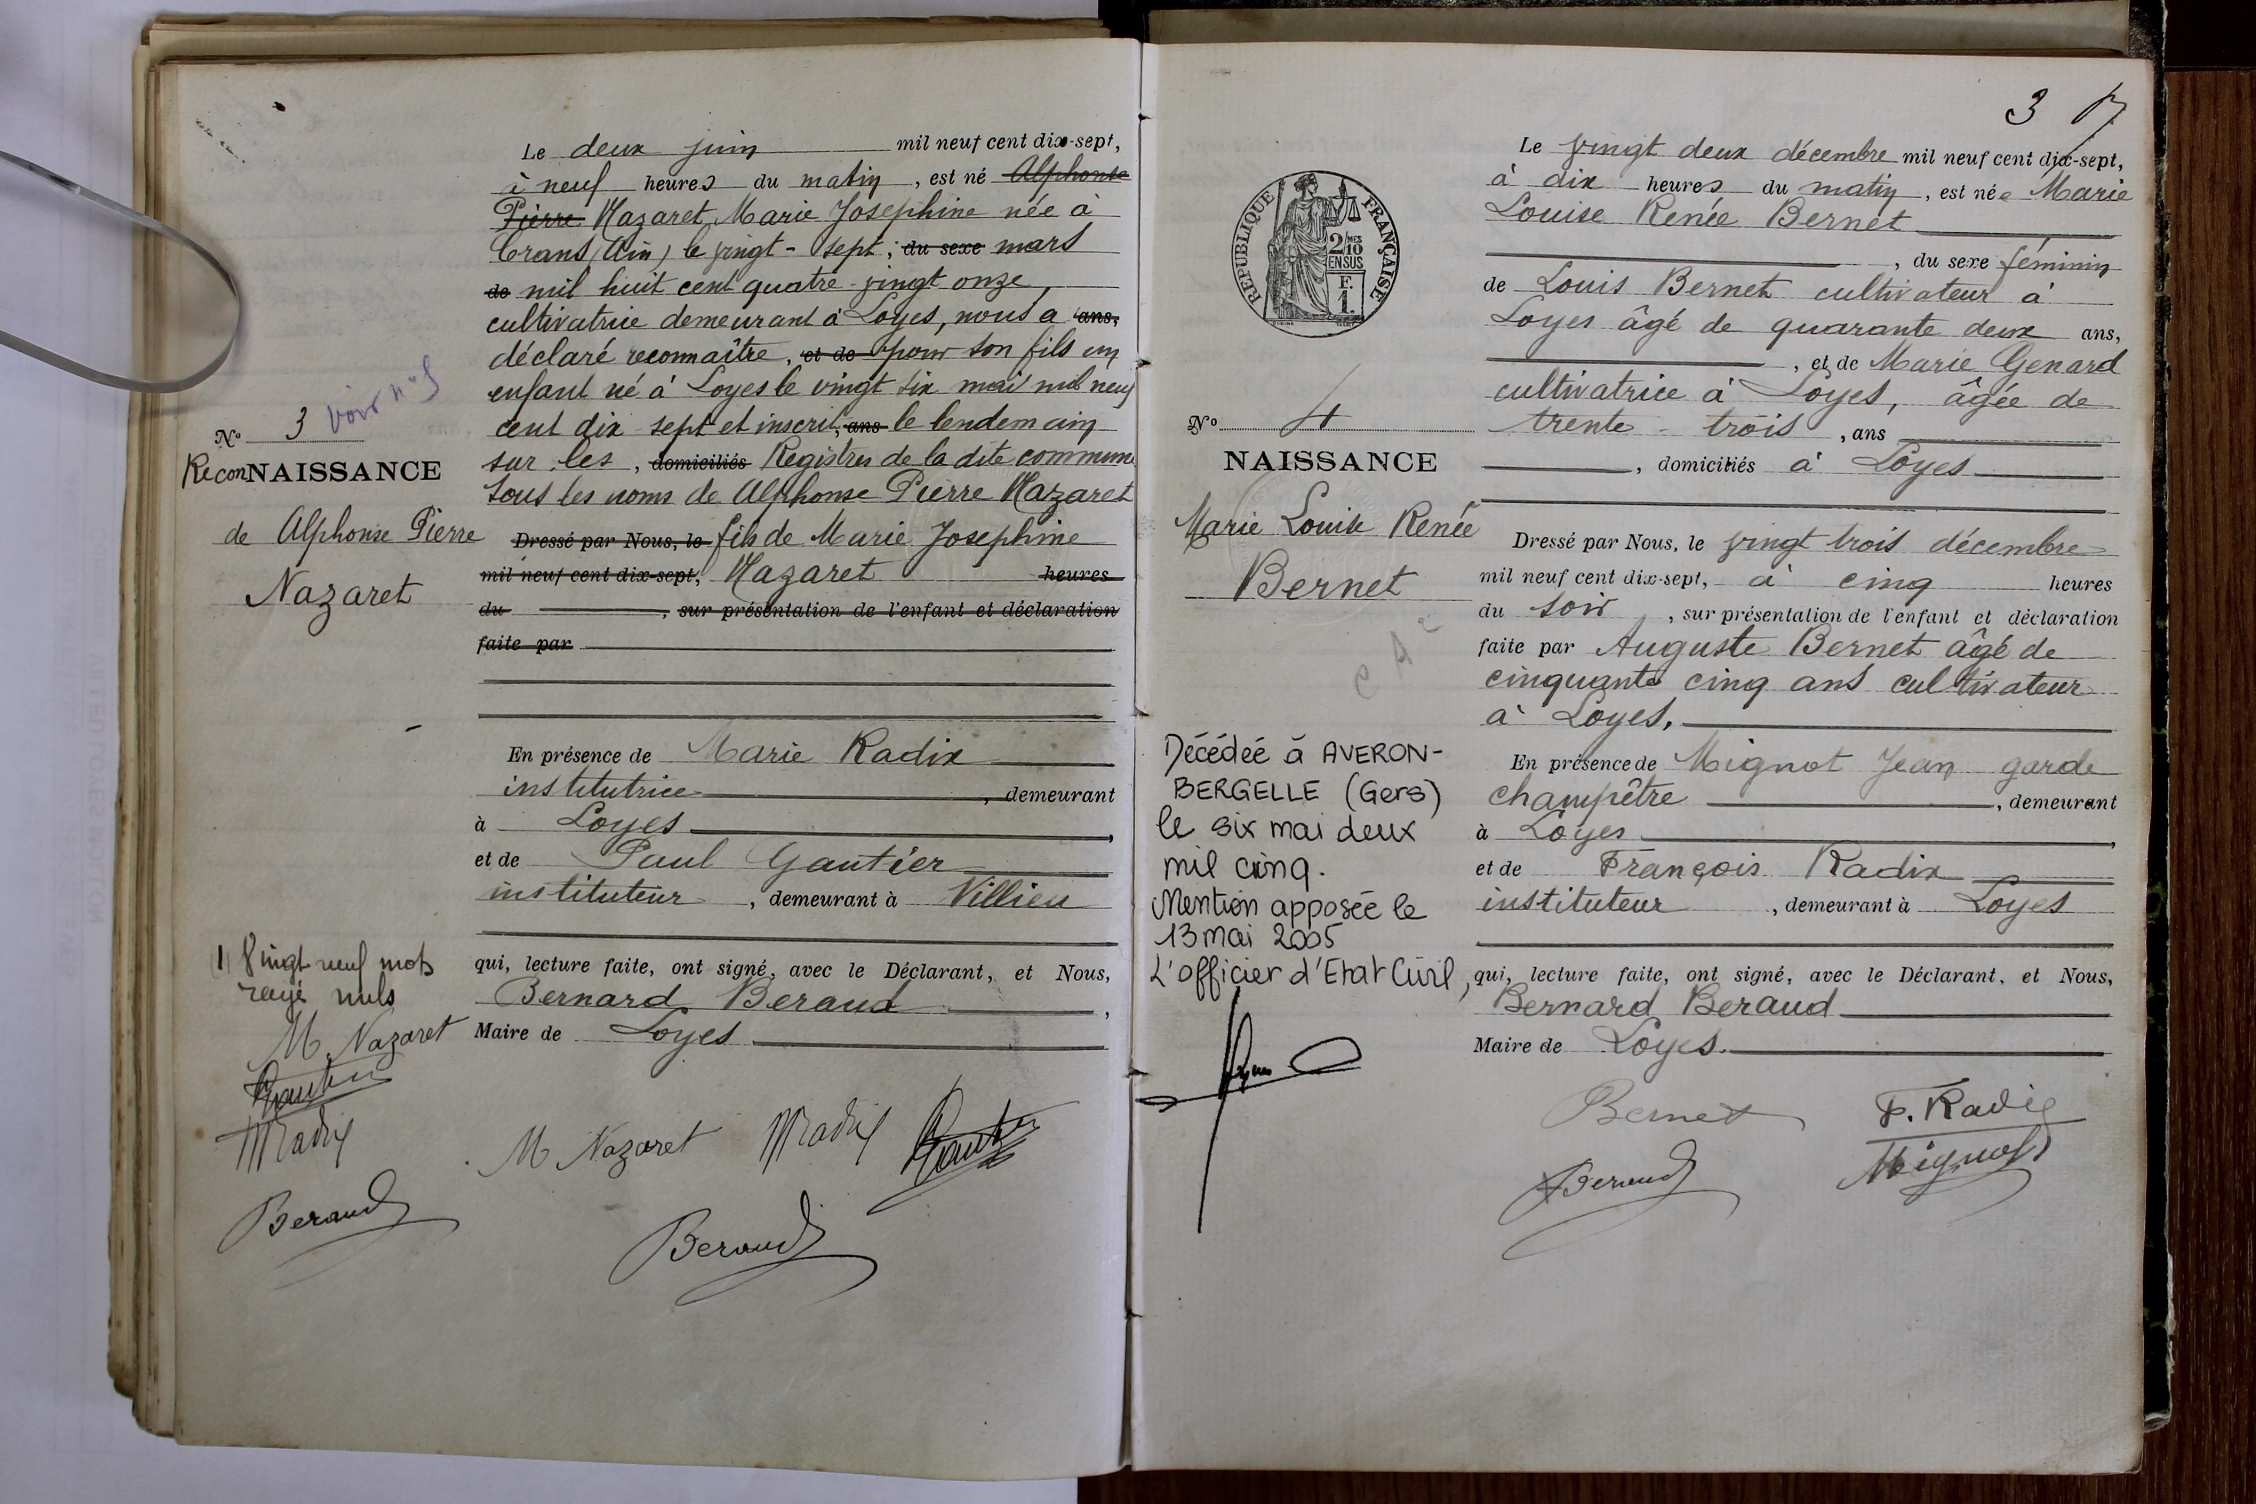 Le deux juin mil neuf cent dix-sept,
à neuf heures du matin, est né Alphonse
Pierre Nazaret Marie Josephine née à
Crans (Ain) le vingt-sept, du sexe mars
de mil huit cent quatre-vingt onze,
cultivatrice demeurant à Loyes, nous a ans,
déclaré reconnaître, et de pour son fils un
enfant né à Loyes le vingt six mai mil neuf
cent dix sept et inscrit, ans le lendemain
sur les, domiciliés Registres de la dite commune
sous les noms de Alphonse Pierre Nazaret
Dressé par Nous, le fils de Marie Josephine
mil neuf cent dix-sept, Nazaret heures
du , sur présentation de l'enfant et déclaration
faite par
En présence de Marie Radix
institutrice , demeurant
à Loyes ,
et de Paul Gautier
instituteur , demeurant à Villieu
qui, lecture faite, ont signé, avec le Déclarant, et Nous,
Bernard Beraud ,
Maire de Loyes
M Nazaret MRadix Gautier
Beraud
No 3 voir n° 5
ReconNAISSANCE
de Alphonse Pierre
Nazaret
(1) Vingt neuf mots
rayé nuls
M Nazaret
Gautier
MRadix
Beraud
3
RÉPUBLIQUE FRANÇAISE
2/10MES
EN SUS
F.
1.
No 4
NAISSANCE
Marie Louise Renée
Bernet
Décédée à AVERON-
BERGELLE (Gers)
le six mai deux
mil cinq.
Mention apposée le
13 mai 2005
L'officier d'Etat Civil,
Le vingt deux décembre mil neuf cent dix-sept,
à dix heures du matin, est née Marie
Louise Renée Bernet
, du sexe féminin
de Louis Bernet cultivateur à
Loyes âgé de quarante deux ans,
, et de Marie Genard
cultivatrice à Loyes, âgée de
trente-trois, ans
, domiciliés à Loyes
Dressé par Nous, le vingt trois décembre
mil neuf cent dix-sept, à cinq heures
du soir, sur présentation de l'enfant et déclaration
faite par Auguste Bernet âgé de
cinquante cinq ans cultivateur
à Loyes,
En présence de Mignot Jean garde
champêtre , demeurant
à Loyes ,
et de François Radix
instituteur , demeurant à Loyes
qui, lecture faite, ont signé, avec le Déclarant, et Nous,
Bernard Beraud
Maire de Loyes.
Bernet F. Radix
Beraud Mignot